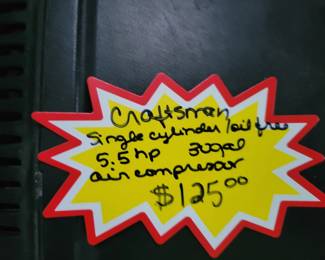 Craftsman
Single cylinder/oil free
5.5 hp 30gal
air compresor
$125.00